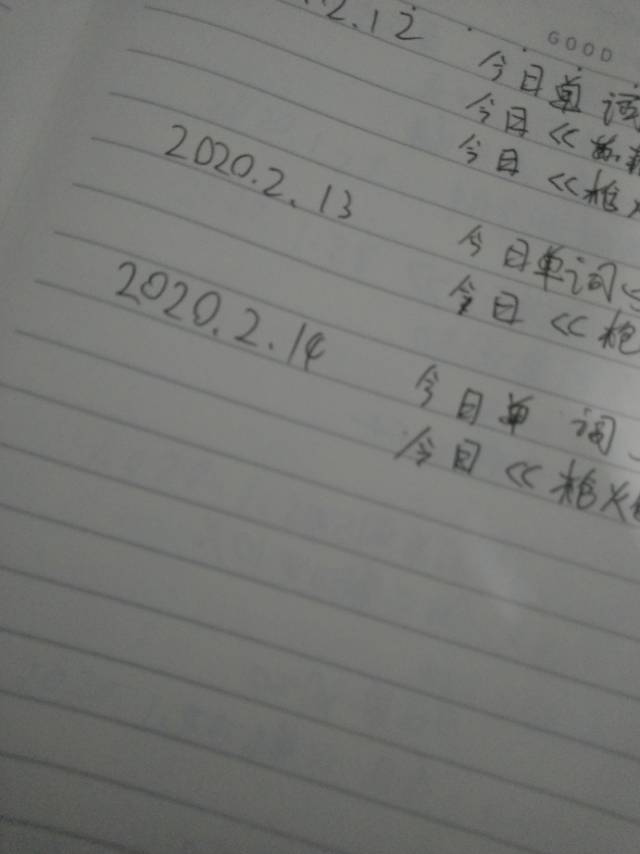 GOOD
.2.12 今日单词
今日《
今日《枪
2020.2.13 今日单词
今日《枪
2020.2.14 今日单词
今日《枪火